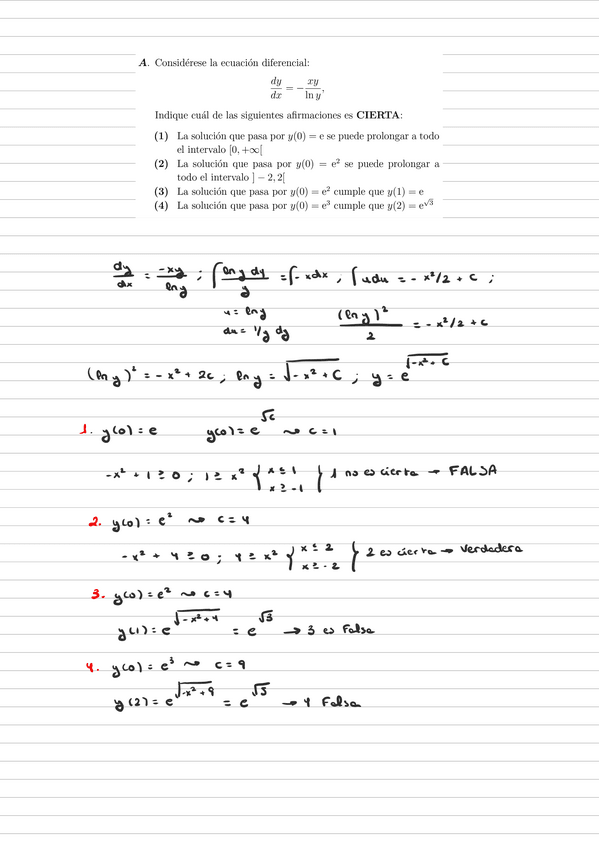 A. Considérese la ecuación diferencial:
dy/dx = − xy/ln y,
Indique cuál de las siguientes afirmaciones es CIERTA:
(1) La solución que pasa por y(0) = e se puede prolongar a todo
el intervalo [0, +∞[
(2) La solución que pasa por y(0) = e² se puede prolongar a
todo el intervalo ] − 2, 2[
(3) La solución que pasa por y(0) = e² cumple que y(1) = e
(4) La solución que pasa por y(0) = e³ cumple que y(2) = e^√3
dy/dx = -xy/ln y ; ∫ ln y dy / y = ∫ -x dx , ∫ u du = - x²/2 + c ;
u = ln y
du = 1/y dy
(ln y)²/2 = - x²/2 + c
(ln y)² = - x² + 2c ; ln y = √(-x² + C) ; y = e^√(-x² + C)
1. y(0) = e y(0) = e^√c ⤳ c = 1
-x² + 1 ≥ 0 ; 1 ≥ x² { x ≤ 1 x ≥ -1 } 1 no es cierta → FALSA
2. y(0) = e² ⤳ c = 4
-x² + 4 ≥ 0 ; 4 ≥ x² { x ≤ 2 x ≥ -2 } 2 es cierta → Verdadera
3. y(0) = e² ⤳ c = 4
y(1) = e^√(-x² + 4) = e^√3 → 3 es Falsa
4. y(0) = e³ ⤳ c = 9
y(2) = e^√(-x² + 9) = e^√5 → 4 Falsa